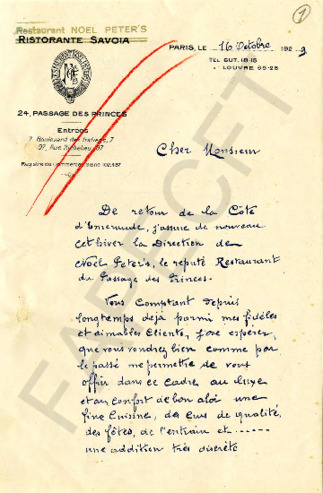 Restaurant NOEL PETER'S
RISTORANTE SAVOIA
1
PARIS, LE 16 Octobre 1929
TEL GUT. 18-15
LOUVRE 65-28
24, PASSAGE DES PRINCES
Entrées
7 Boulevard des Italiens, 7
97, Rue Richelieu, 97
Registre du Commerce Seine
Cher Monsieur
De retour de la Côte
d'Emeraude, j'assume de nouveau
cet hiver la Direction de
Noël Peter's, le reputé Restaurant
du Passage des Princes.
Vous Comptant depuis
longtemps déjà parmi mes fidèles
et aimables Clients, j'ose espérer,
que vous voudrez bien comme par
le passé me permettre de vous
offrir dans ce Cadre au luxe
et au confort de bon aloi une
fine Cuisine, des Crus de qualité,
des fêtes, de l'entrain et ......
une addition très discrète